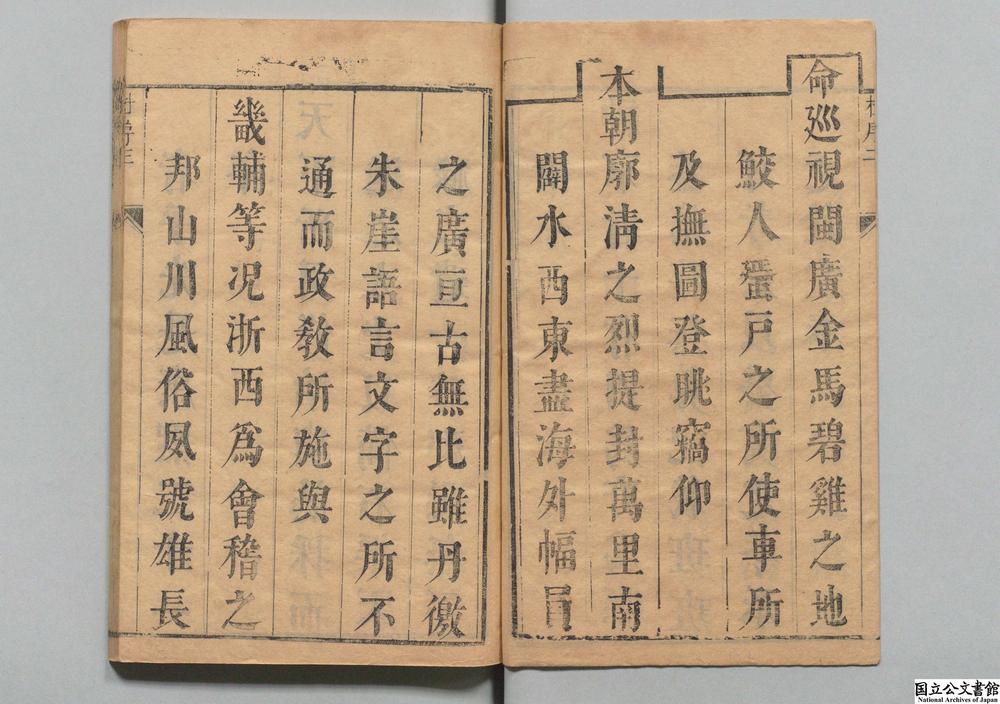 命巡視閩廣金馬碧雞之地
鮫人蜑戸之所使車所
及撫圖登眺竊仰
本朝廓清之烈提封萬里南
闢水西東盡海外幅員
之廣亘古無比雖丹徼
朱崖語言文字之所不
通而政敎所施與
畿輔等况浙西爲會稽之
邦山川風俗夙號雄長
国立公文書館
National Archives of Japan